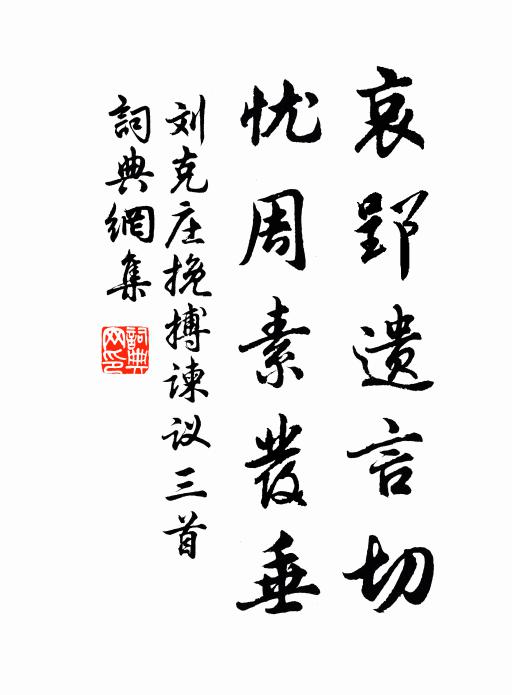 哀郢遗言切
忧周素发垂
刘克庄挽搏谏议三首
詞典網集
詞典网印